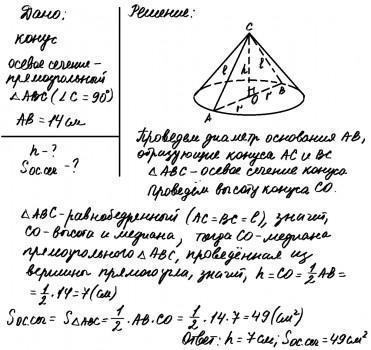 Дано:
конус
осевое сечение-
прямоугольный
△ABC (∠C = 90°)
AB = 14 см
h - ?
Sос.сеч - ?
Решение:
C
l
h
l
A
r
O
r
B
Проведем диаметр основания AB,
образующие конуса AC и BC
△ABC - осевое сечение конуса
Проведём высоту конуса CO.
△ABC - равнобедренный (AC = BC = l), значит,
CO - высота и медиана, тогда CO - медиана
прямоугольного △ABC, проведённая из
вершины прямого угла, значит, h = CO = 1/2 AB =
= 1/2 · 14 = 7 (см)
Sос.сеч = S△ABC = 1/2 · AB · CO = 1/2 · 14 · 7 = 49 (см²)
Ответ: h = 7 см; Sос.сеч = 49 см²